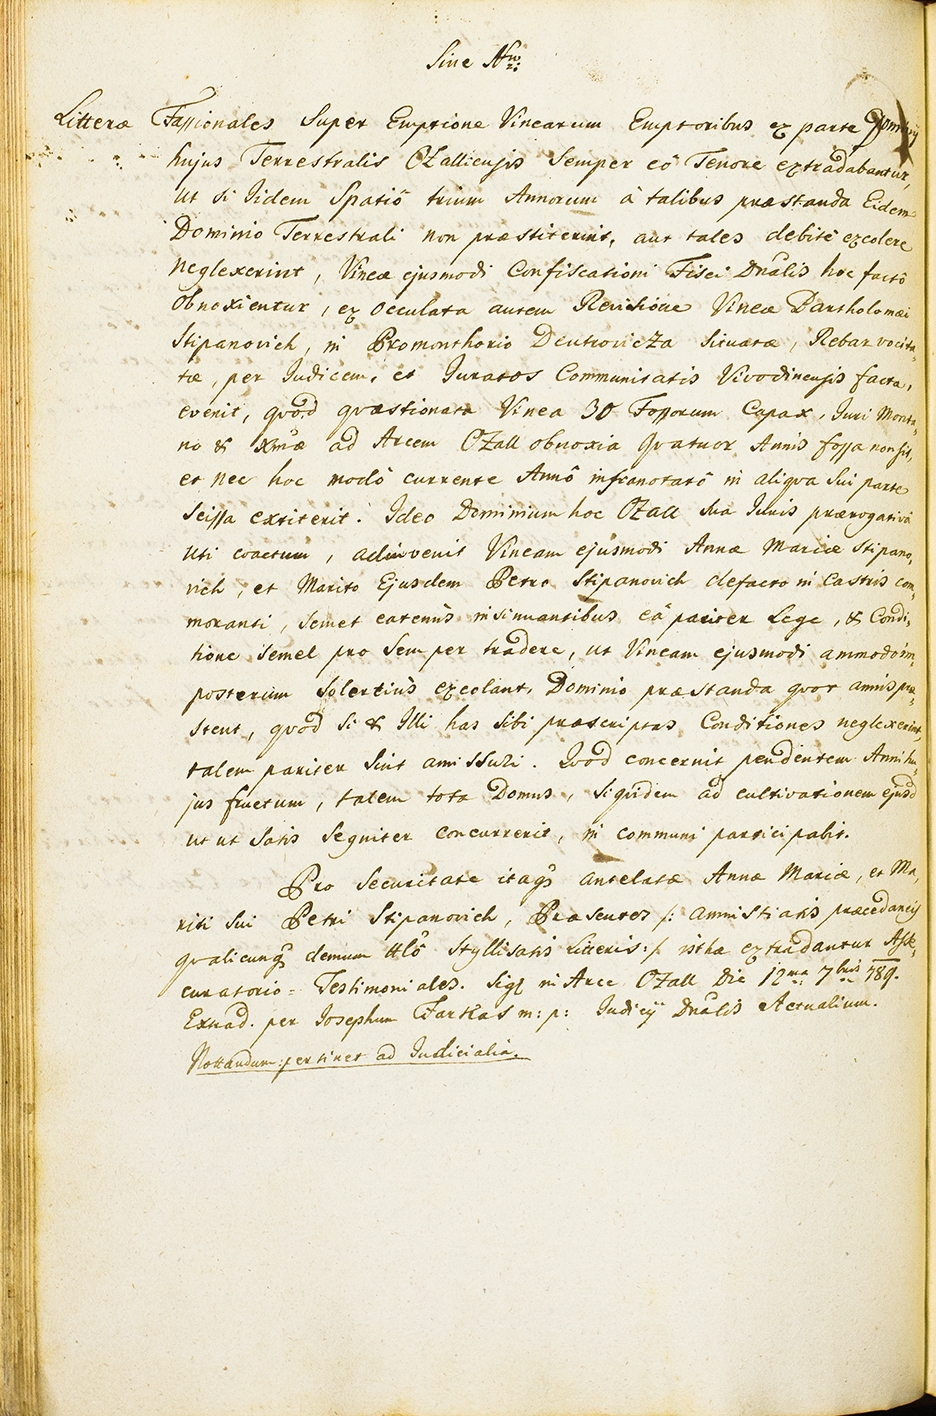 Sine Nro:
Litteræ Fassionales Super Emptione Vinearum Emptoribus ex parte Dominij
hujus Terrestralis Ozalliensis Semper eô Tenore extradabantur,
ut si Iidem Spatiô trium Annorum â talibus præstanda Eidem
Dominio Terrestrali non præstiterint, aut tales debitè excolere
neglexerint, Vineæ ejusmodi Confiscationi Fisci Dnalis hoc factô
obnoxientur, ex occulata autem Revisione Vineæ Bartholomæi
Stipanovich, in Promonthorio Dentrovicza Situatæ, Rebar vocita-
tæ, per Judicem, et Juratos Communitatis Vivodinensis facta,
evenit, quòd quæstionata Vinea 30 Fossorum Capax, Juri Monta-
no & Xmæ ad Arcem Ozall obnoxia quatuor Annis fossa non sit,
et nec hoc modô currente Annô infranotatô in aliqua sui parte
Scissa extiterit. Ideo Dominium hoc Ozall sua Iuris prærogativâ
uti coactum, adinvenit Vineam ejusmodi Annæ Mariæ Stipano-
vich, et Marito Ejusdem Petro Stipanovich defacto in Castris com-
moranti, Semet eatenùs insinuantibus eâ pariter Lege, & Condi-
tione semel pro Semper tradere, ut Vineam ejusmodi ammodo im-
posterum Solertiùs excolant, Dominio præstanda quot annis præ-
stent, quòd si & Illi has sibi præscriptas Conditiones neglexerint
talem pariter Sint amissuri. Quod concernit pendentem Anni hu-
jus fructum, talem tota Domus, siquidem ad cultivationem ejusd
ut ut satis Segniter concurrerit, in communi participabit.
Pro Securitate itaq antelatæ Annæ Mariæ, et Ma-
riti sui Petri Stipanovich, Præsentes /: amnistiatis præcedaneis
qualicunq demum ttlô Styllisatis Literis :/ isthæ extradantur Asse-
curatorio = Testimoniales. Sigl in Arce Ozall Die 12ma 7bris 789.
Extrad. per Josephum Farkas m: p: Judicij Dnalis Actualium.
Nottandum: pertinet ad Judicialia.